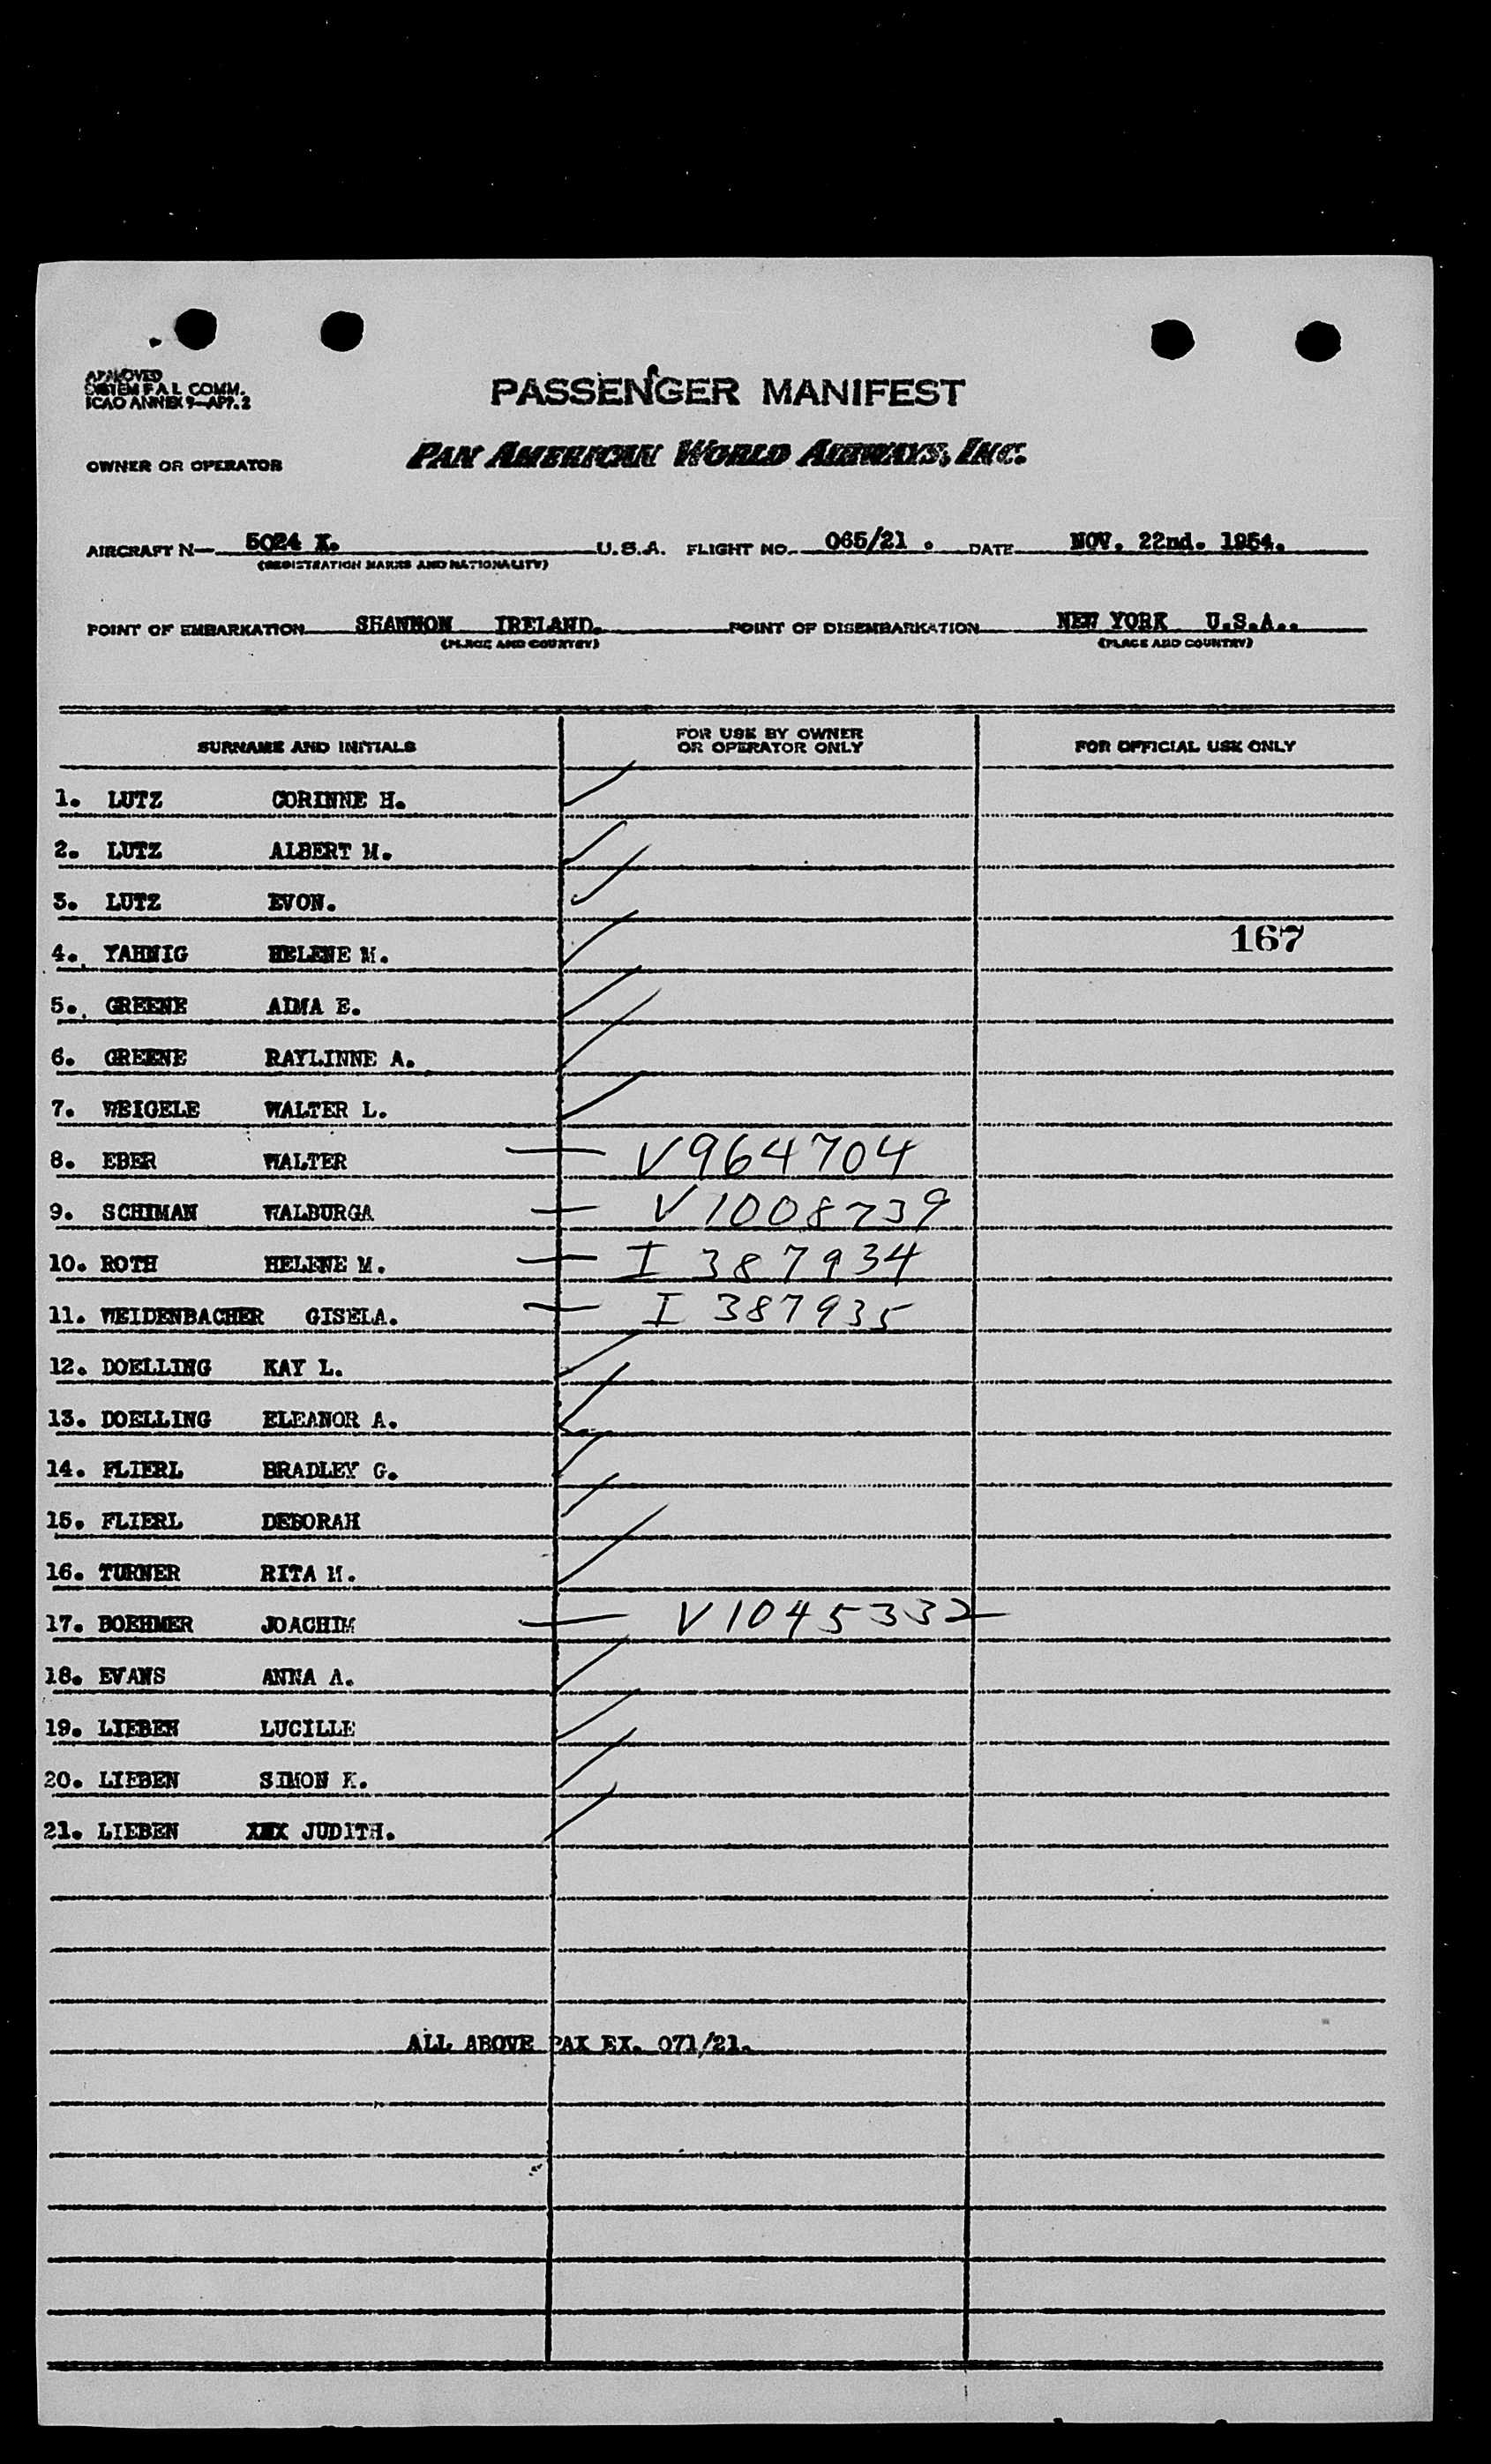 APPROVED
SYSTEM F.A.L. COMM.
ICAO ANNEX 9—APP. 2
PASSENGER MANIFEST
OWNER OR OPERATOR PAN AMERICAN WORLD AIRWAYS, INC.
AIRCRAFT N— 5024 X. U.S.A. FLIGHT NO. 065/21 . DATE NOV. 22nd. 1954.
(REGISTRATION MARKS AND NATIONALITY)
POINT OF EMBARKATION SHANNON IRELAND. POINT OF DISEMBARKATION NEW YORK U.S.A..
(PLACE AND COUNTRY) (PLACE AND COUNTRY)
SURNAME AND INITIALS FOR USE BY OWNER OR OPERATOR ONLY FOR OFFICIAL USE ONLY
1. LUTZ CORINNE H.
2. LUTZ ALBERT M.
3. LUTZ EVON.
4. YAHNIG HELENE M. 167
5. GREENE AIMA E.
6. GREENE RAYLINNE A.
7. WEIGELE WALTER L.
8. EBER WALTER — V964704
9. SCHIMAN WALBURGA — V1008739
10. ROTH HELENE M. — I 387934
11. WEIDENBACHER GISELA. — I 387935
12. DOELLING KAY L.
13. DOELLING ELEANOR A.
14. FLIERL BRADLEY G.
15. FLIERL DEBORAH
16. TURNER RITA M.
17. BOEHMER JOACHIM — V1045332
18. EVANS ANNA A.
19. LIEBEN LUCILLE
20. LIEBEN SIMON K.
21. LIEBEN XXX JUDITH.
ALL ABOVE PAX EX. 071/21.